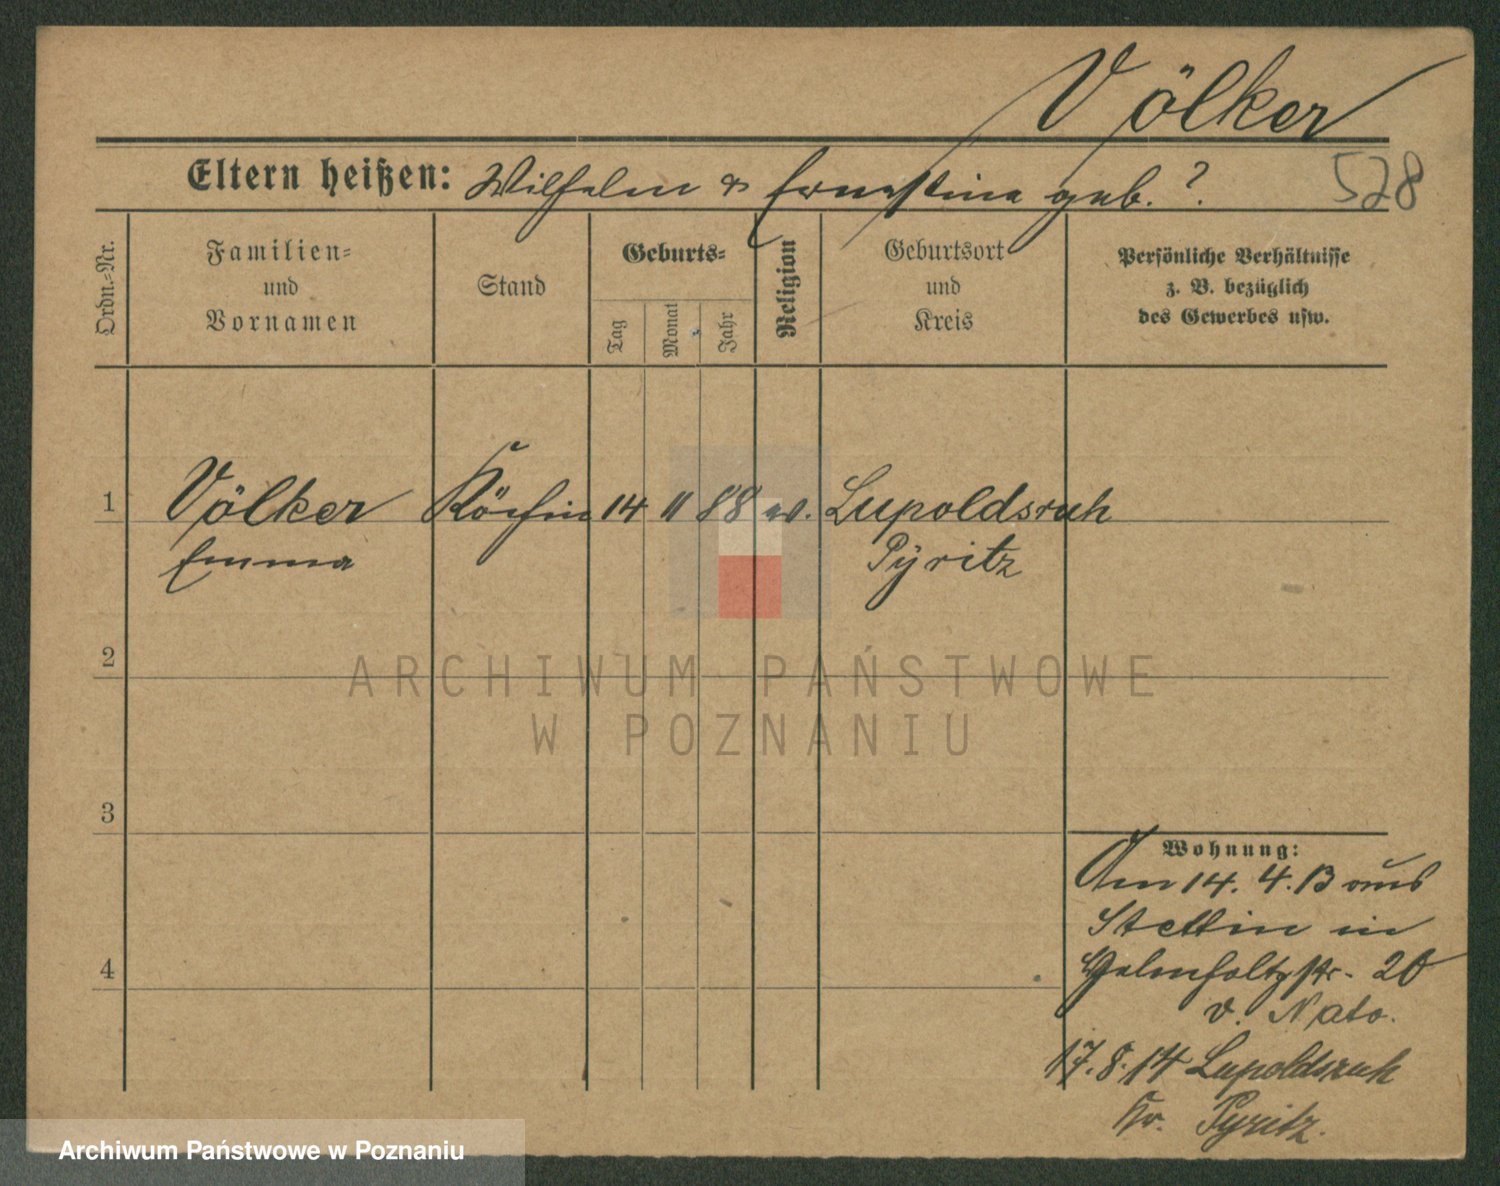 Völker
Eltern heißen: Wilhelm & Ernestine geb. ?
528
Ordn.=Nr.
Familien=
und
Vornamen
Stand
Geburts=
Tag
Monat
Jahr
Religion
Geburtsort
und
Kreis
Persönliche Verhältnisse
z. B. bezüglich
des Gewerbes usw.
1 Völker Köchin 14 11 88 ev. Lupoldsruh
Emma Pyritz
2
ARCHIWUM PAŃSTWOWE
W POZNANIU
3
Wohnung:
Am 14. 4. 13 aus
Stettin in
4 Helmholtzstr. 20
v. Nato.
17. 8. 14 Lupoldsruh
Kr. Pyritz.
Archiwum Państwowe w Poznaniu